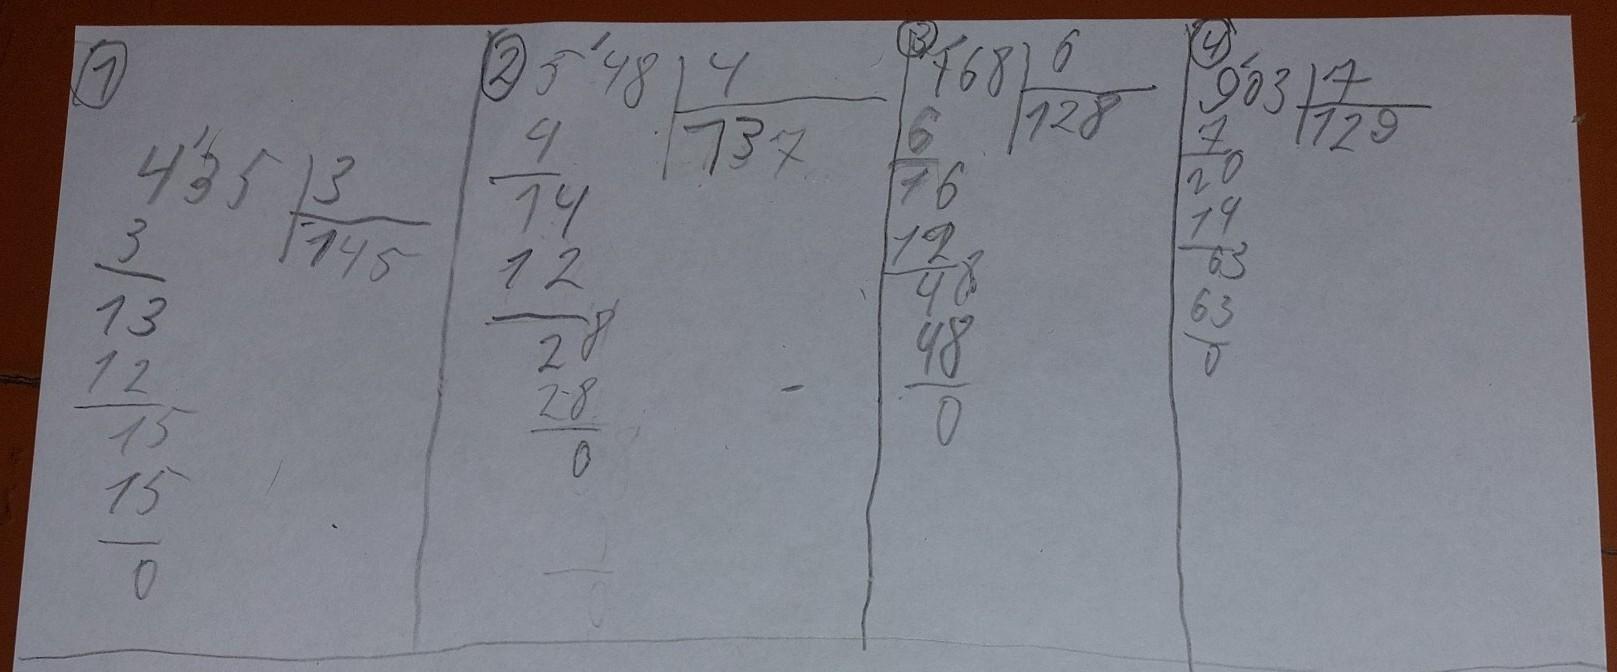 ①
4'35 | 3
3
145
13
12
15
15
0
② 5'48 | 4
4
137
14
12
28
28
0
③ 7'68 | 6
6
128
16
12
48
48
0
④
9'03 | 7
7
129
20
14
63
63
0